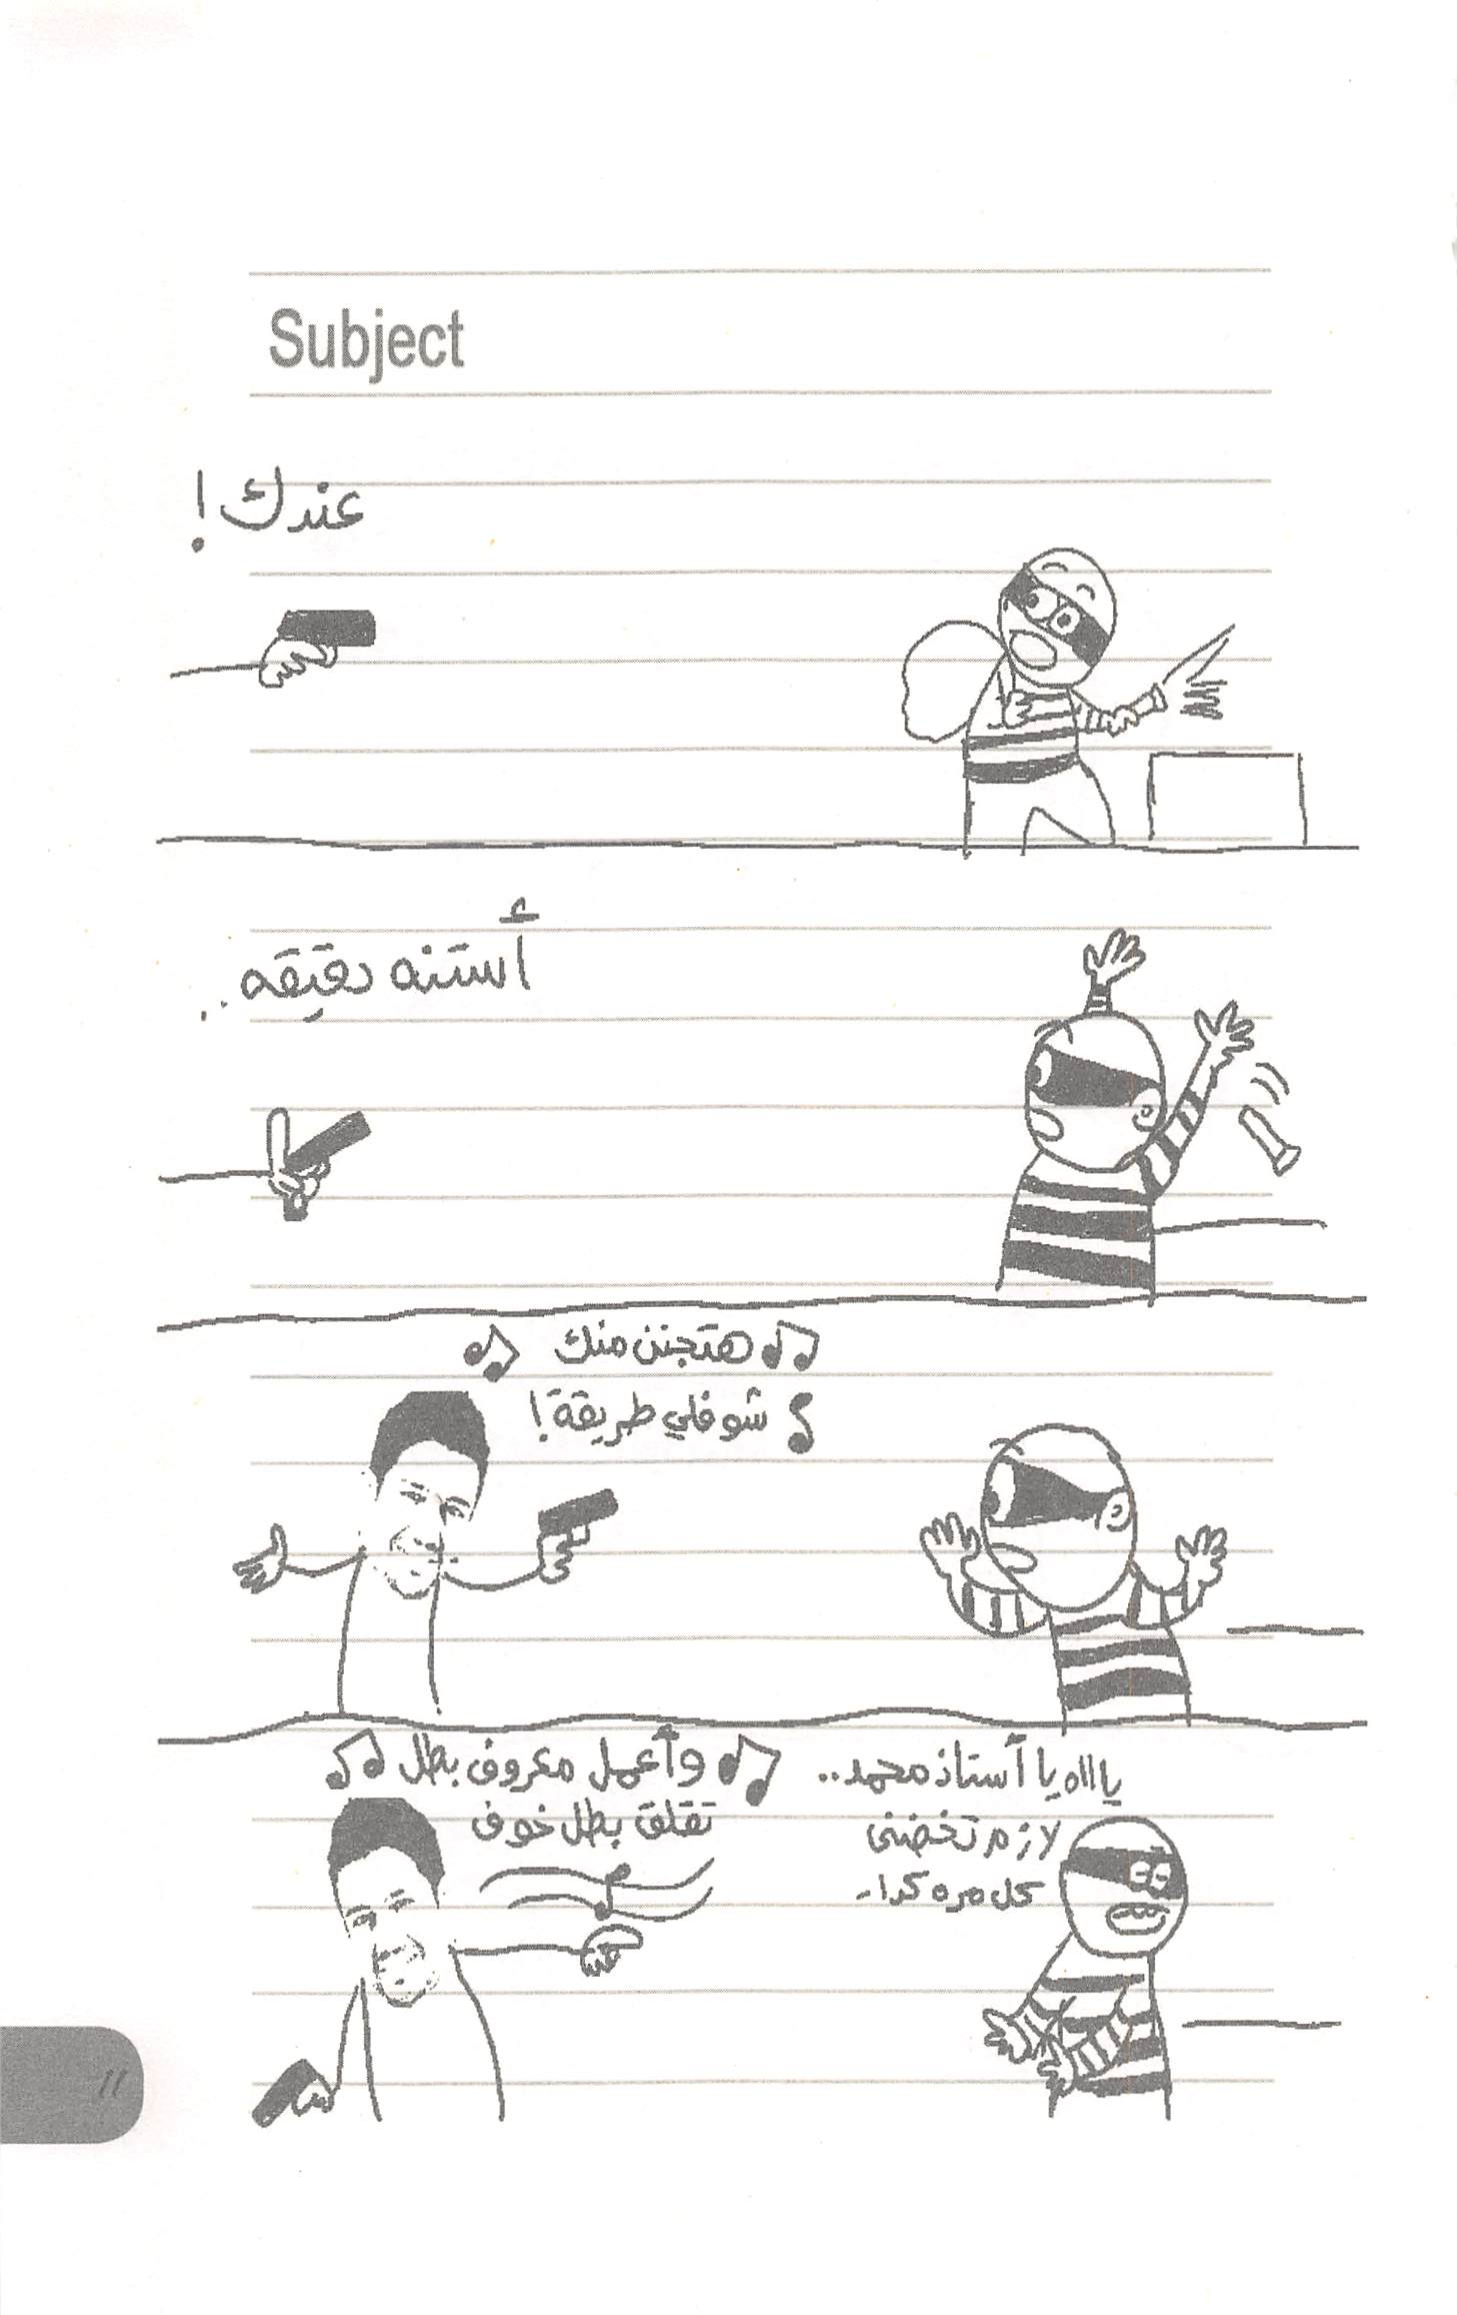 Subject
عندك!
أستنه دقيقه..
هتجنن منك
شوفلي طريقة!
وأعمل معروف بطل
تقلق بطل خوف
يااااه يا أستاذ محمد..
لازم تخضني
كل مره كدا..
١١